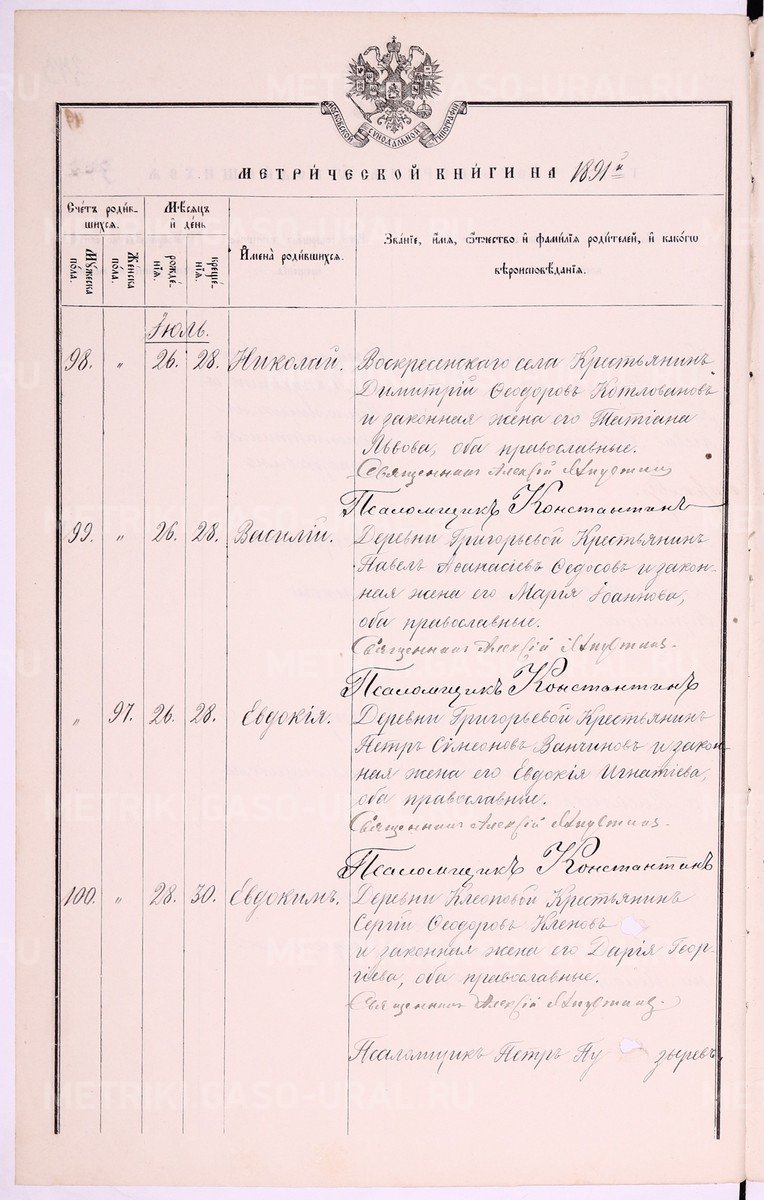 МОСКОВСКОЙ СѴНОДАЛЬНОЙ ТИПОГРАФІИ
МЕТРИ́ЧЕСКОЙ КНИ́ГИ НА 1891й
Счетъ роди́в-
шихся.
Мѣсяцъ
и́ де́нь
Мꙋ́жеска по́ла.
Же́нска по́ла.
рожде́-
нїѧ.
креще́-
нїѧ.
И҆мена̀ роди́вшихся.
Зва́нїе, и҆́мѧ, ѻ҆́тчество и҆ фамı́лїѧ роди́телей, и҆ како́гѡ
вѣроисповѣ́данїѧ.
Іюль.
98. " 26. 28. Николай. Воскресенскаго села Крестьянинъ
Димитрій Ѳеодоровъ Котловановъ
и законная жена его Татіана
Львова, оба православные.
Священникъ Алексій
Псаломщикъ Константинъ
99. " 26. 28. Василій. Деревни Григорьевой Крестьянинъ
Павелъ Аѳанасіевъ Ѳедосовъ и закон-
ная жена его Марія Іоаннова,
оба православные.
Священникъ Алексій
Псаломщикъ Константинъ
" 97. 26. 28. Евдокія. Деревни Григорьевой Крестьянинъ
Петръ Сѵмеоновъ Ванчиновъ и закон-
ная жена его Евдокія Игнатіева,
оба православные.
Священникъ Алексій
Псаломщикъ Константинъ
100. " 28. 30. Евдокимъ. Деревни Клеоповой Крестьянинъ
Сергій Ѳеодоровъ Кленовъ
и законная жена его Дарія Геор-
гіева, оба православные.
Священникъ Алексій
Псаломщикъ Петръ Пу зыревъ
METRIKI.GASO-URAL.RU